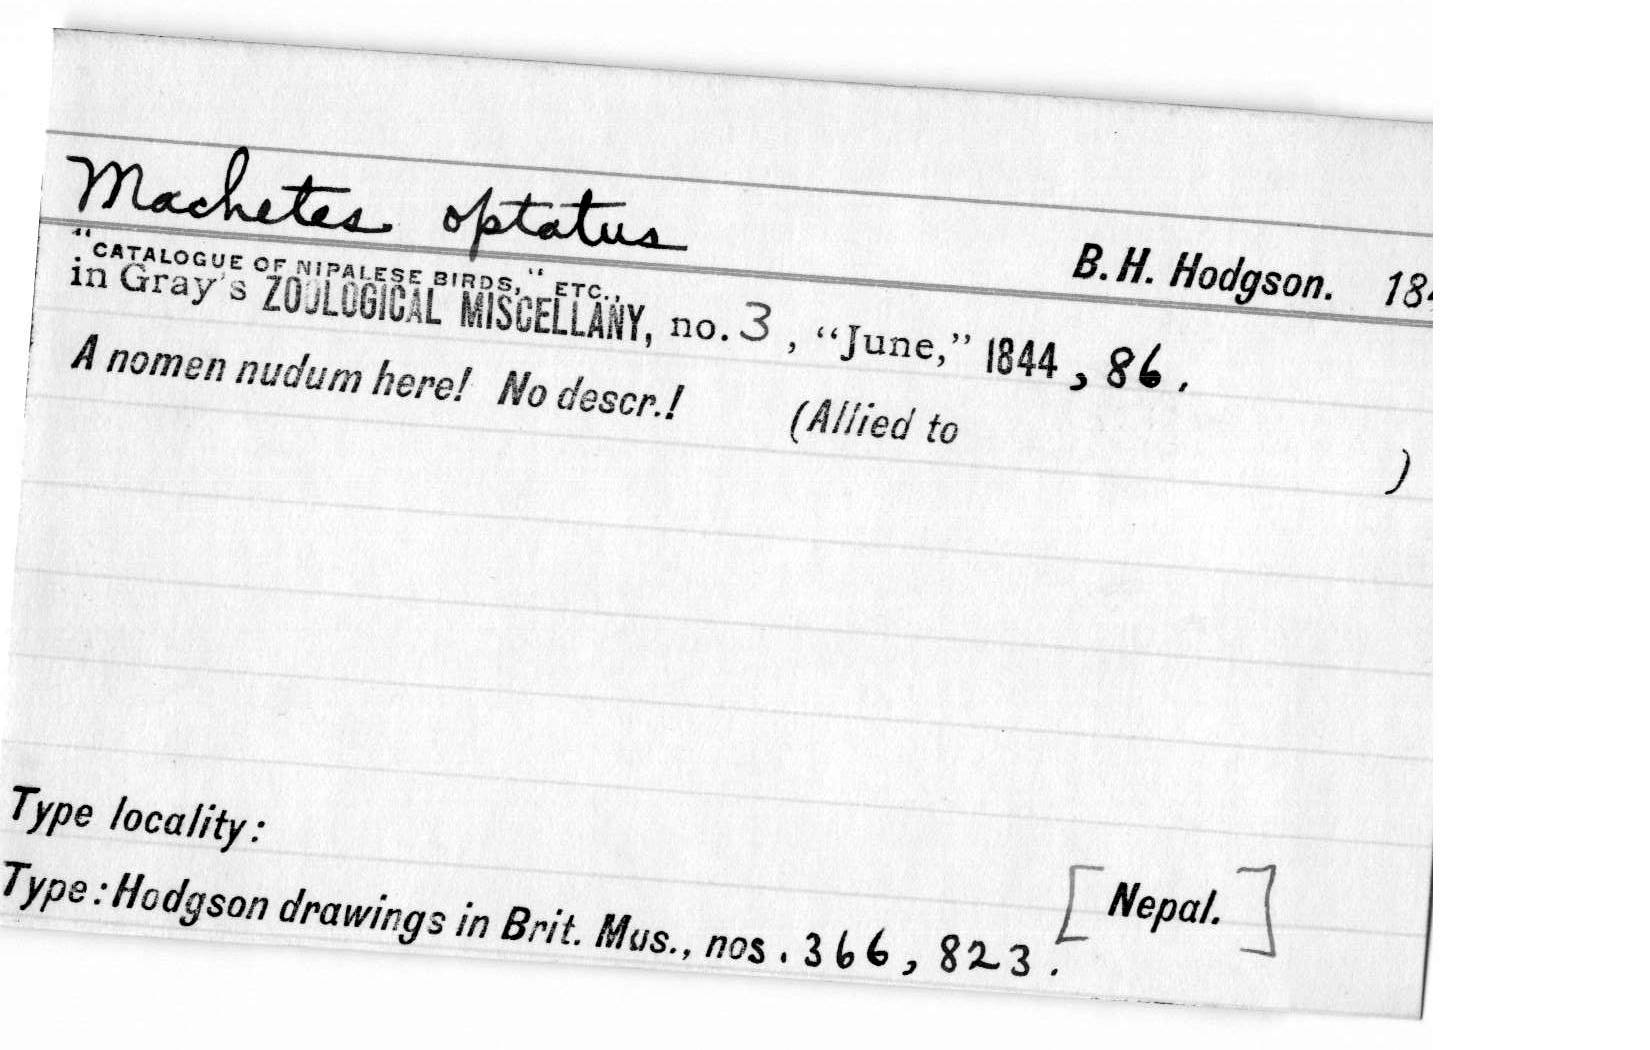 Machetes optatus
B. H. Hodgson. 18
"CATALOGUE OF NIPALESE BIRDS," ETC.,
in Gray's ZOOLOGICAL MISCELLANY, no. 3, "June," 1844, 86.
A nomen nudum here! No descr.! (Allied to )
Type locality:
[Nepal.]
Type: Hodgson drawings in Brit. Mus., nos. 366, 823.